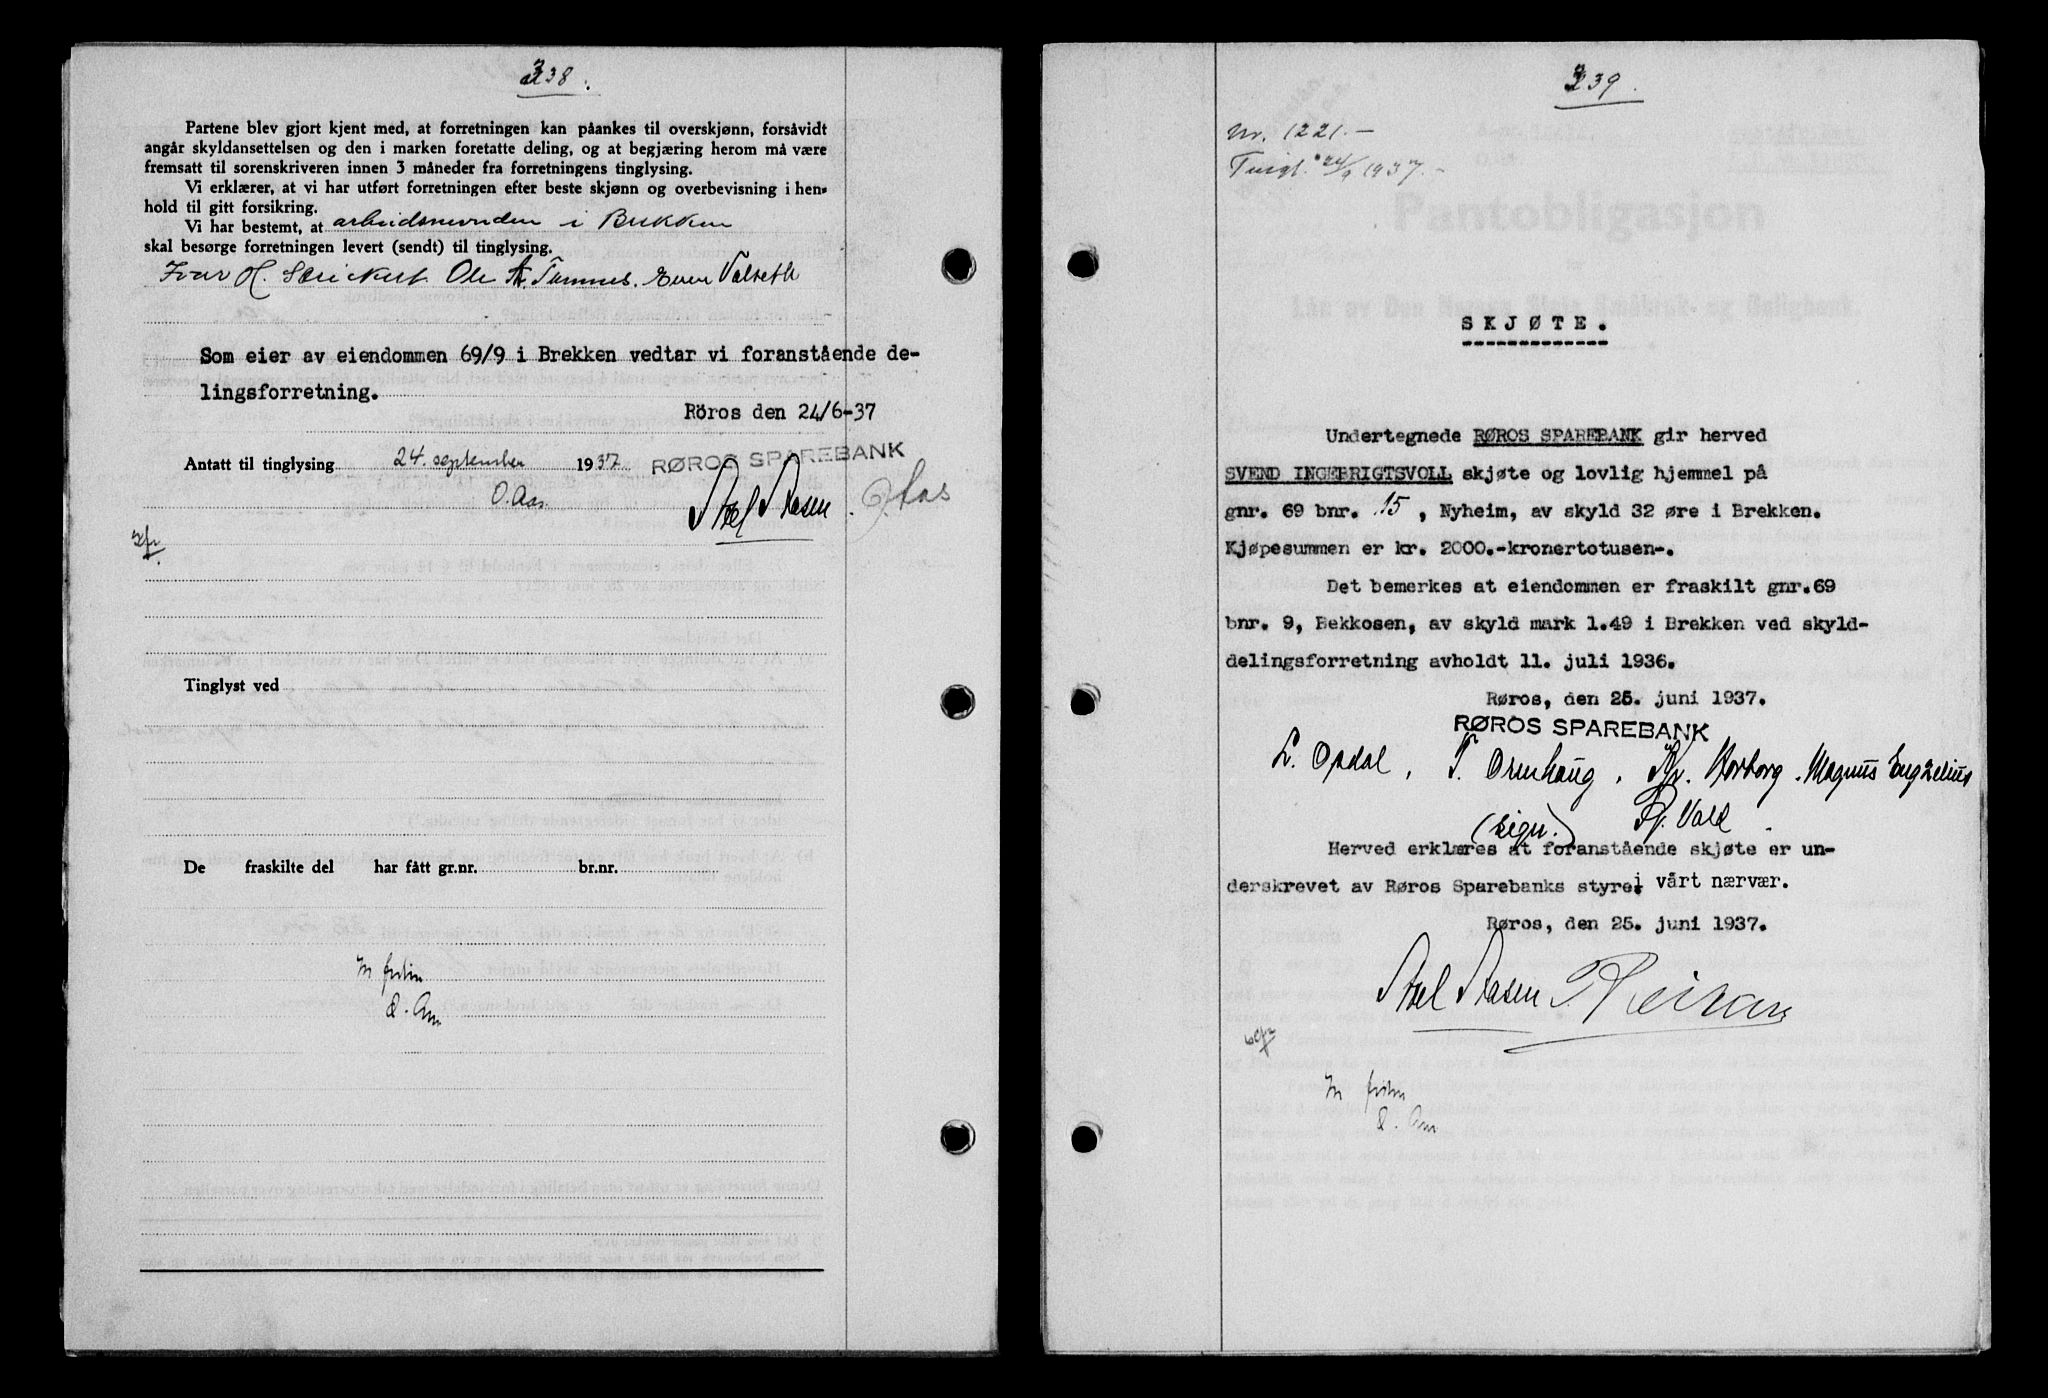 338.
Partene blev gjort kjent med, at forretningen kan påankes til overskjønn, forsåvidt
angår skyldansettelsen og den i marken foretatte deling, og at begjæring herom må være
fremsatt til sorenskriveren innen 3 måneder fra forretningens tinglysing.
Vi erklærer, at vi har utført forretningen efter beste skjønn og overbevisning i hen-
hold til gitt forsikring.
Vi har bestemt, at arbeidsnevnden i Brekken
skal besørge forretningen levert (sendt) til tinglysing.
Ivar H. Ole A. Tamnes. Even Valseth
Som eier av eiendommen 69/9 i Brekken vedtar vi foranstående de-
lingsforretning.
Röros den 24/6-37
Antatt til tinglysing 24. september 1937
RØROS SPAREBANK
O. Aas.
Axel Aasen. Aas
Tinglyst ved
De fraskilte del har fått gr.nr. br.nr.
O. Aas
339.
Nr. 1221.-
Tingl. 24/9 1937.-
SKJØTE.
Undertegnede RØROS SPAREBANK gir herved
SVEND INGEBRIGTSVOLL skjøte og lovlig hjemmel på
gnr. 69 bnr. 15, Nyheim, av skyld 32 øre i Brekken.
Kjøpesummen er kr. 2000.-kronertotusen-.
Det bemerkes at eiendommen er fraskilt gnr.69
bnr. 9, Bekkosen, av skyld mark 1.49 i Brekken ved skyld-
delingsforretning avholdt 11. juli 1936.
Røros, den 25. juni 1937.
RØROS SPAREBANK
L. Opdal, T. Ormhaug, Magnus Engzelius
(sign.) P. Vold.
Herved erklæres at foranstående skjøte er un-
derskrevet av Røros Sparebanks styre i vårt nærvær.
Røros, den 25. juni 1937.
Axel Aasen
O. Aas